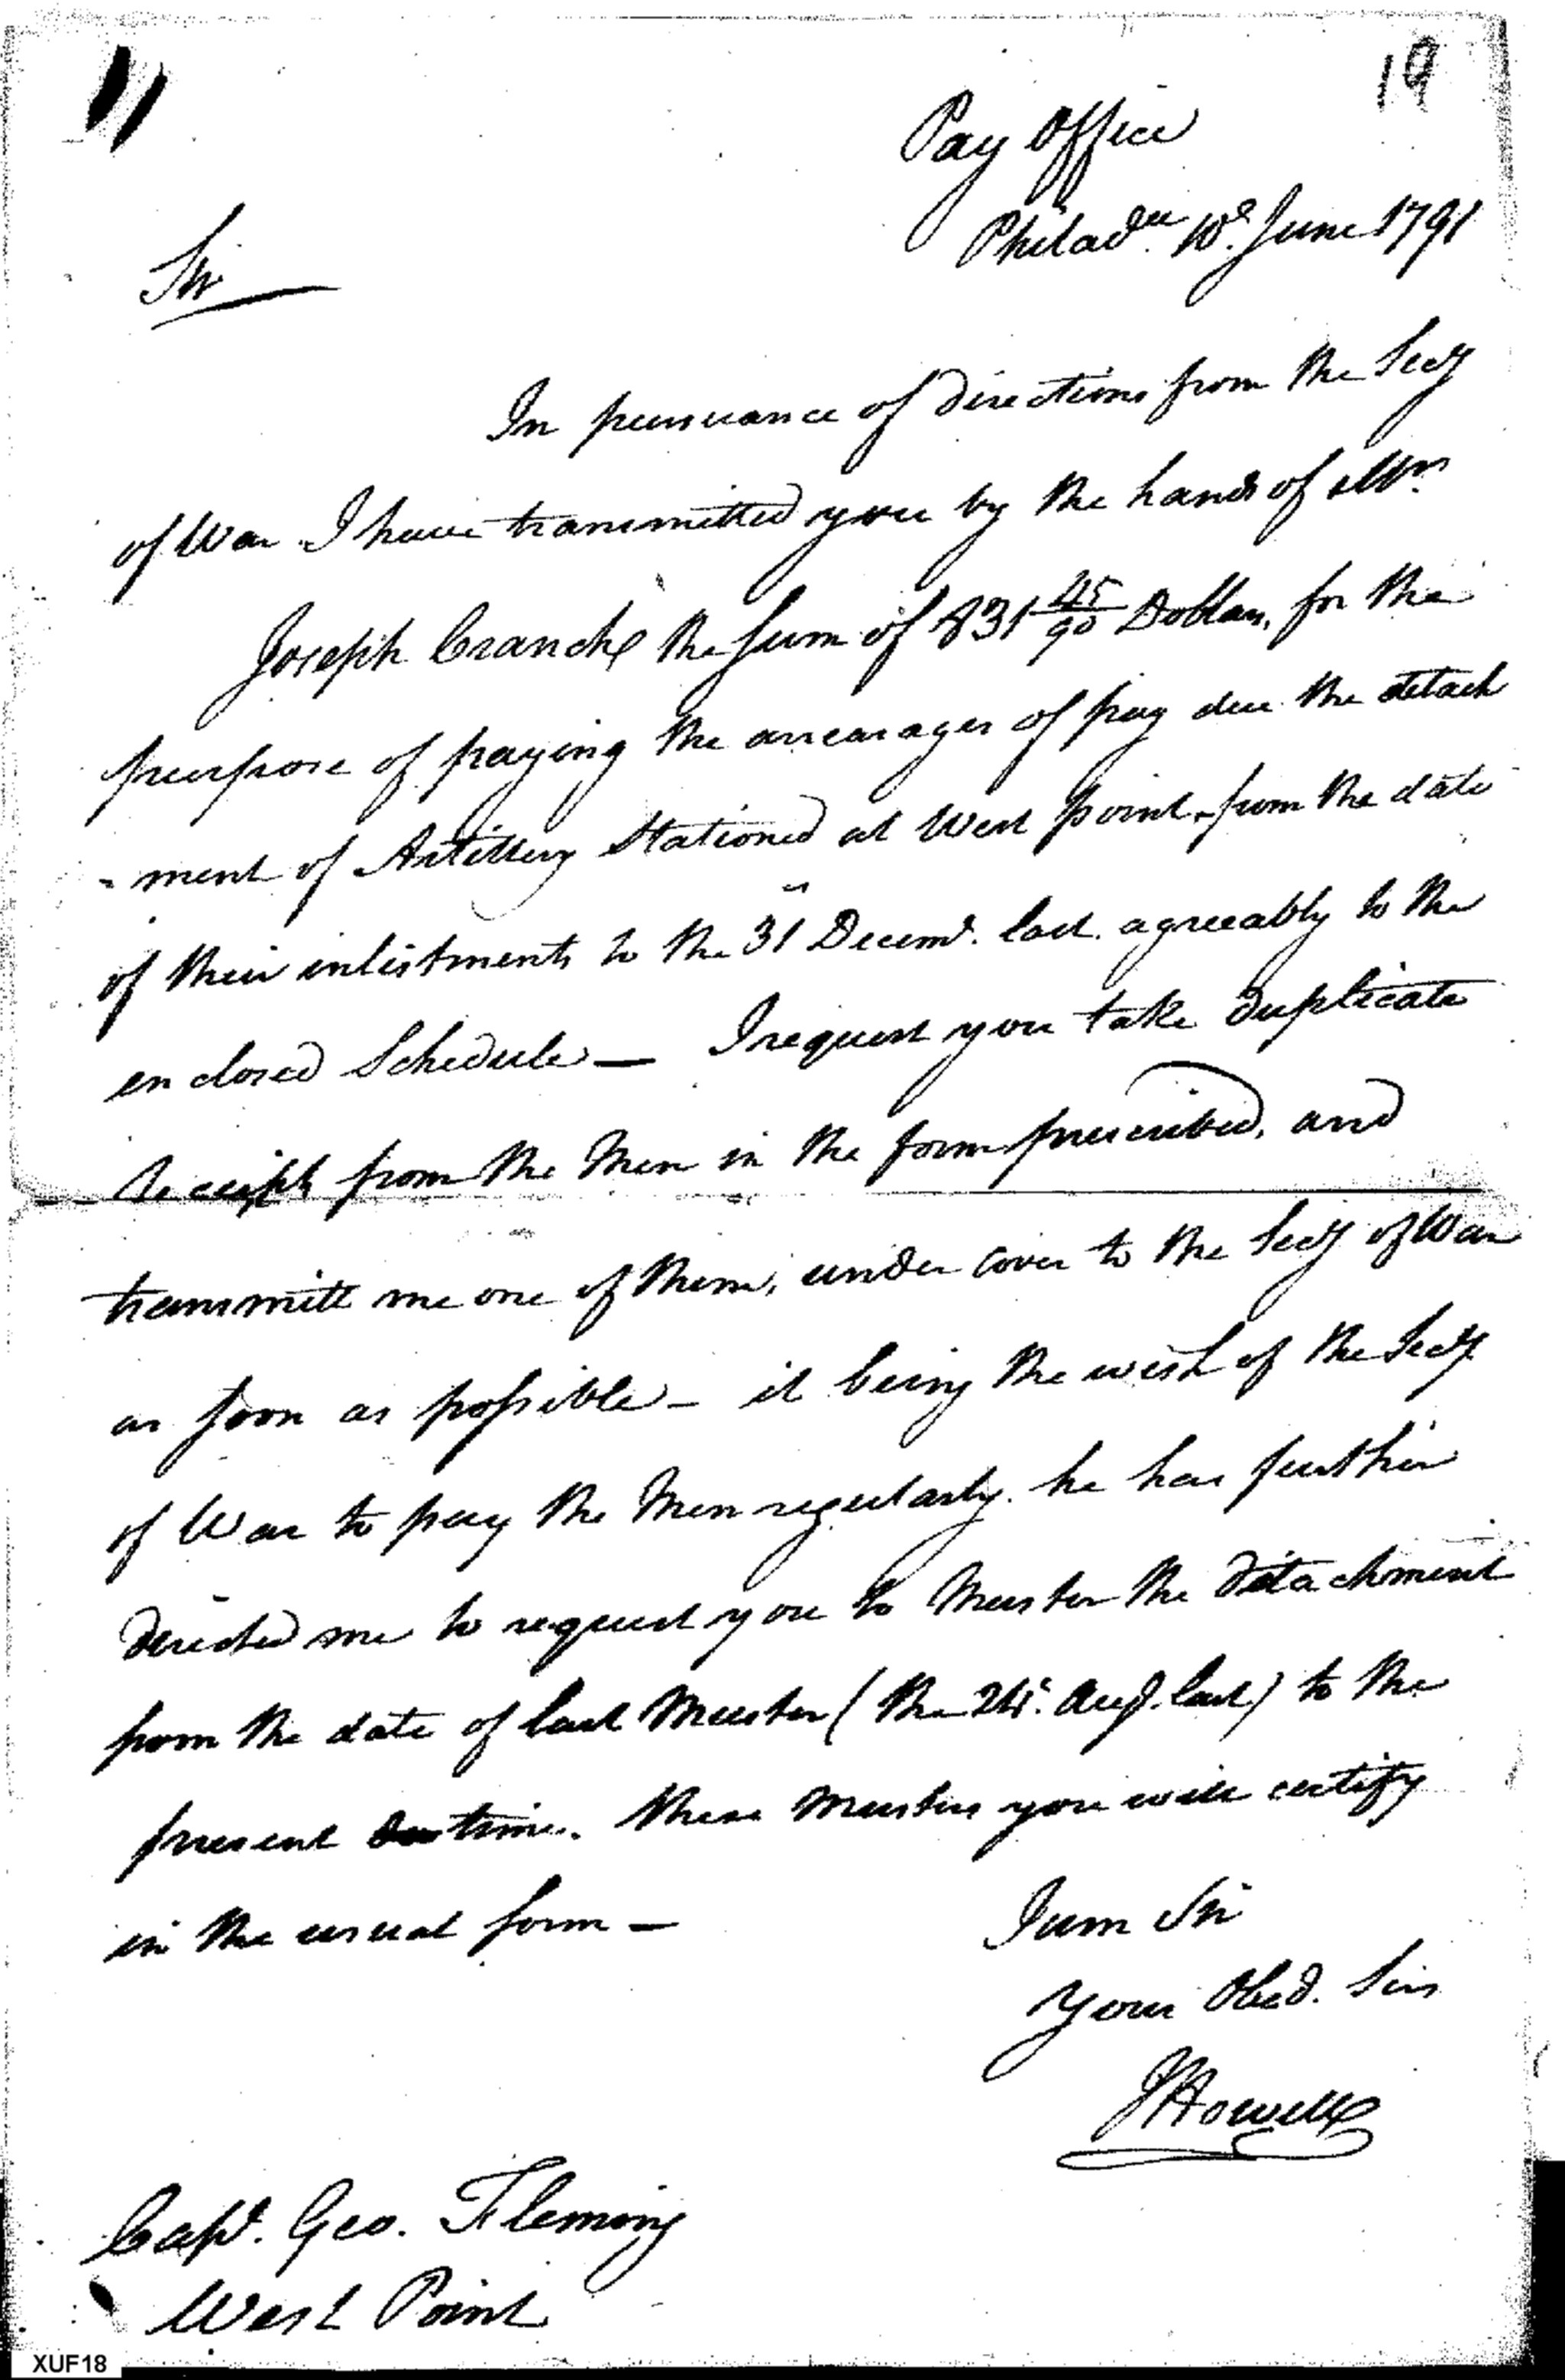 19
Pay Office
Philad.a 10.th June 1791
Sir
In pursuance of directions from the Secy
of War I have transmitted you by the hands of Mr.
Joseph Cranch the Sum of 831 45/90 Dollars, for the
purpose of paying the arrearages of pay due the detach
- ment of Artillery Stationed at West Point, from the date
of their inlistments to the 31 Decemr. last. agreeably to the
enclosed Schedule — I request you take duplicate
receipts from the Men in the form prescribed, and
transmitt me one of them, under cover to the Secy of War
as soon as possible - it being the wish of the Secy
of War to pay the Men regularly. he has further
directed me to request you to Muster the detachment
from the date of last Muster ( the Augt. last) to the
present time. these Musters you will certify
in the usual form -
I am Sir
Your Obed. Serv
J Howell
Capt. Geo. Fleming
West Point
XUF18